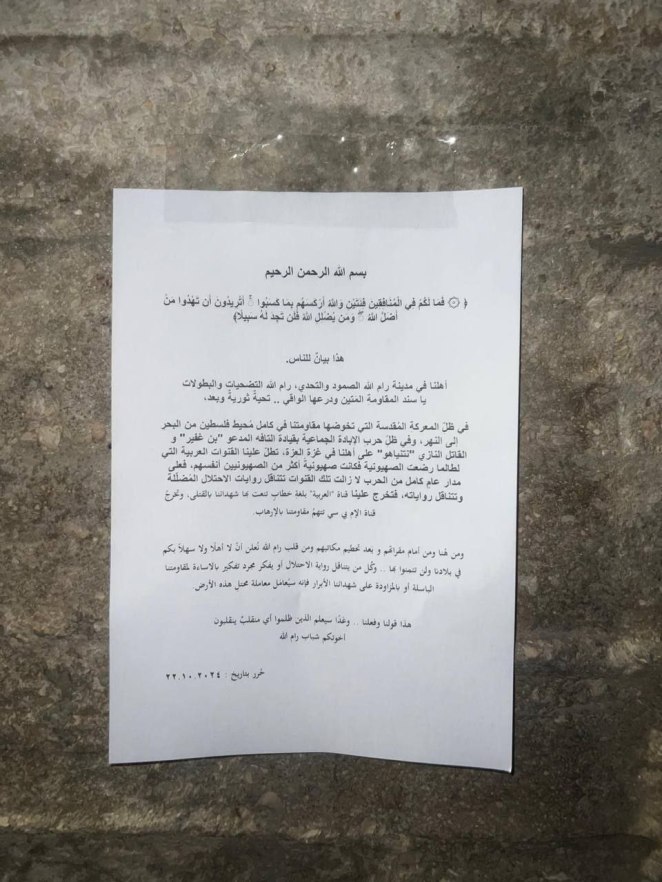 بسم الله الرحمن الرحيم
﴿ ۞ فَمَا لَكُمْ فِي الْمُنَافِقِينَ فِئَتَيْنِ وَاللَّهُ أَرْكَسَهُم بِمَا كَسَبُوا ۚ أَتُرِيدُونَ أَن تَهْدُوا مَنْ
أَضَلَّ اللَّهُ ۖ وَمَن يُضْلِلِ اللَّهُ فَلَن تَجِدَ لَهُ سَبِيلًا﴾
هذا بيانٌ للناس.
أهلنا في مدينة رام الله الصمود والتحدي، رام الله التضحيات والبطولات
يا سند المقاومة المَتين ودرعها الواقي .. تحيةٌ ثوريةٌ وبعد،
في ظلّ المعركة المُقدسة التي تخوضها مقاومتنا في كامل مُحيط فلسطين من البحر
إلى النهر، وفي ظلّ حرب الإبادة الجماعية بقيادة التافه المدعو "بن غفير" و
القاتل النازي "نتنياهو" على أهلنا في غزة العزة، تطلّ علينا القنوات العربية التي
لطالما رضعت الصهيونية فكانت صهيونيةً أكثر من الصهيونيين أنفسهم، فعلى
مدار عام كامل من الحرب لا زالت تلك القنوات تتناقل روايات الاحتلال المُضلّلة
وتتناقل رواياته، فتخرج علينا قناة "العربية" بلغة خطابٍ تنعت بها شهدائنا بالقتلى، وتخرجُ
قناة الإم بي سي تتهمُ مقاومتنا بالإرهاب.
ومن هُنا ومن أمام مقراتهم و بعد تحطيم مكاتبهم ومن قلب رام الله نُعلن أنْ لا أهلًا ولا سهلًا بكم
في بلادنا ولن تنعموا بها .. وكُل من يتناقل رواية الاحتلال أو يفكر مجرد تفكير بالاساءة لمقاومتنا
الباسلة أو بالمزاودة على شهدائنا الأبرار فإنه سيُعامَل معاملة محتلِ هذه الأرض.
هذا قولنا وفعلنا .. وغدًا سيعلم الذين ظلموا أي منقلبٌ ينقلبون
أخوتكم شباب رام الله
حُرر بتاريخ : ٢٢.١٠.٢٠٢٤